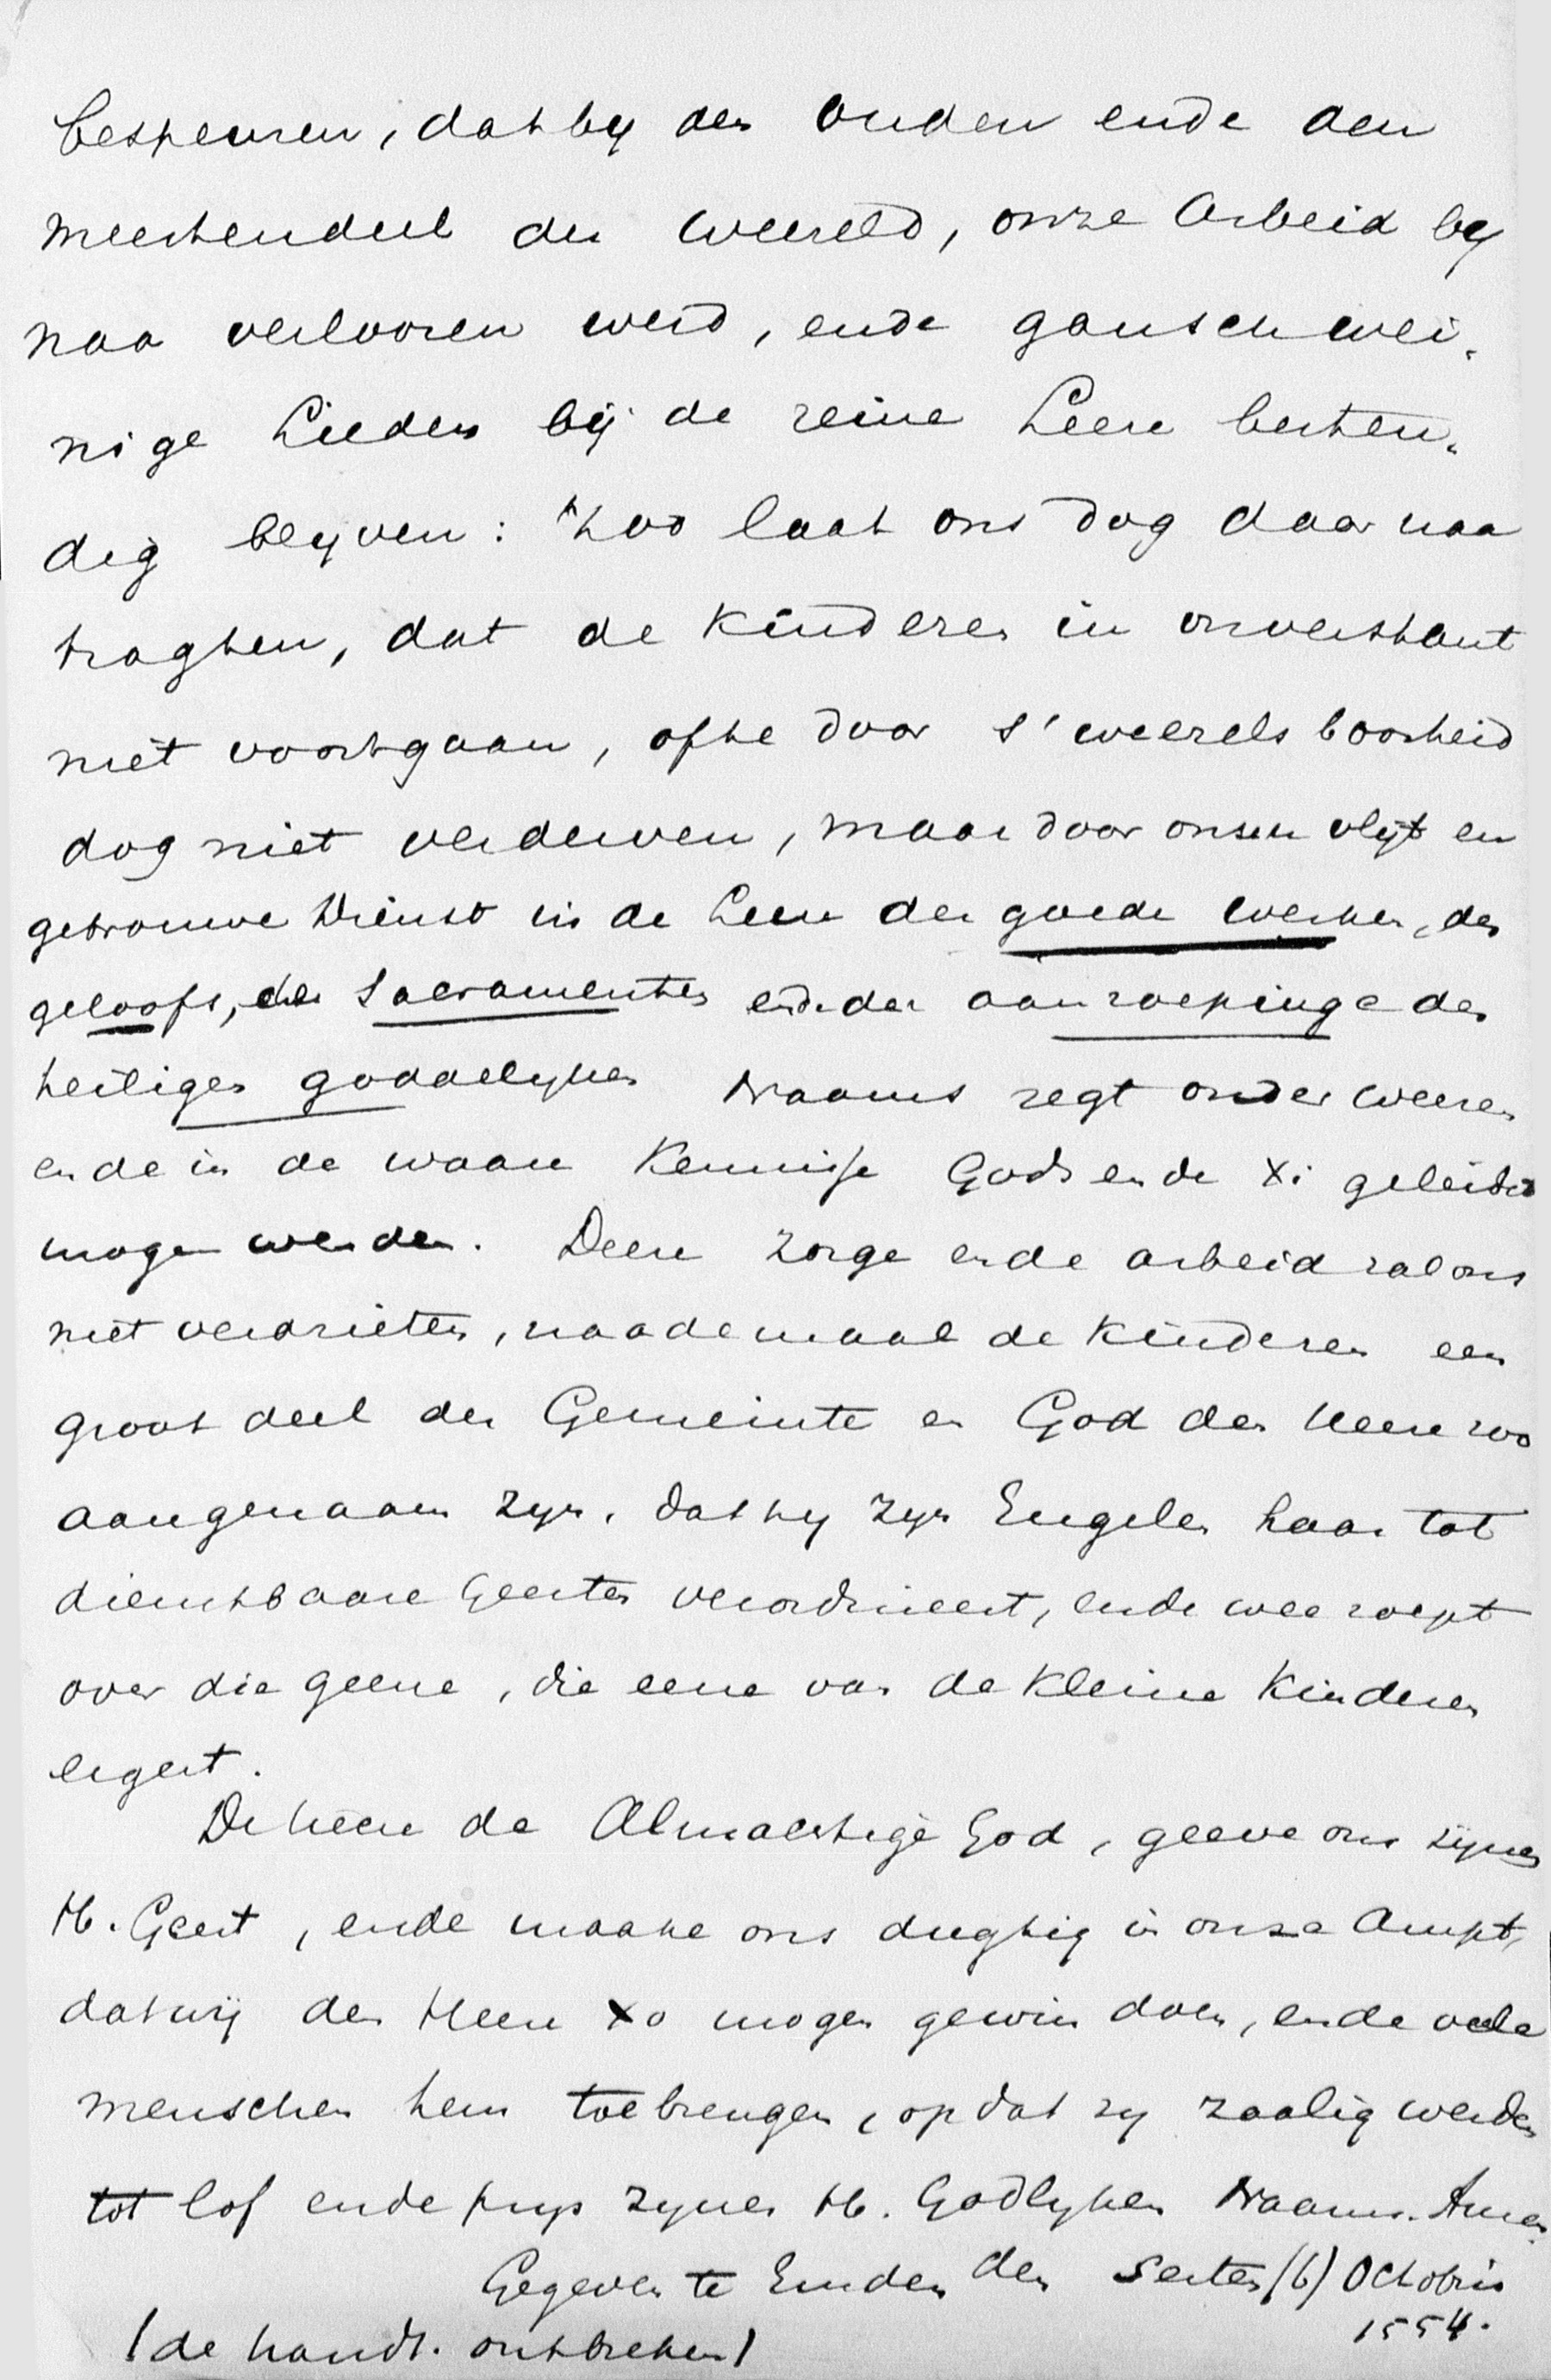 bespeuren, dat by den ouden ende den
meestendeel der weereld, onze Arbeid by
naa verlooren werd, ende gansch wei„
nige Lieden bij de reine Leere besten„
dig blyven: Zoo laat ons dog daar naa
traghten, dat de kinderen in onverstant
niet voortgaan, ofte door s' weerels boosheid
dog niet verderven, maar door onsen vlyt en
getrouwe Dienst in de Leere der goede werken, des
geloofs, der Sacramenten ende der aanroepinge des
heiligen goddelyken Naams regt onderweesen
ende in de waare Kennisse Gods ende Xi geleidet
mogen werden. Deese zorge ende arbeid zal ons
niet verdrieten, naademaal de kinderen een
groot deel der Gemeinte en God den Heere zoo
aangenaam zyn, dat hy zyn Engelen haar tot
dienstbaare Geesten verordineert, ende wee roept
over die geene, die eene van de kleine Kinderen
ergert.
De heere de Almachtige God, geeve ons zijnen
H. Geest, ende maake ons dughtig in onze Ampt,
dat wij den Heere Xo mogen gewin doen, ende veele
menschen hem toebrengen, op dat zy zaalig werden
tot lof ende prys zynes H. Godlyken Naams. Amen.
Gegeven te Emden den Sesten (6) Octobris
1554.
(de handt. ontbreken)